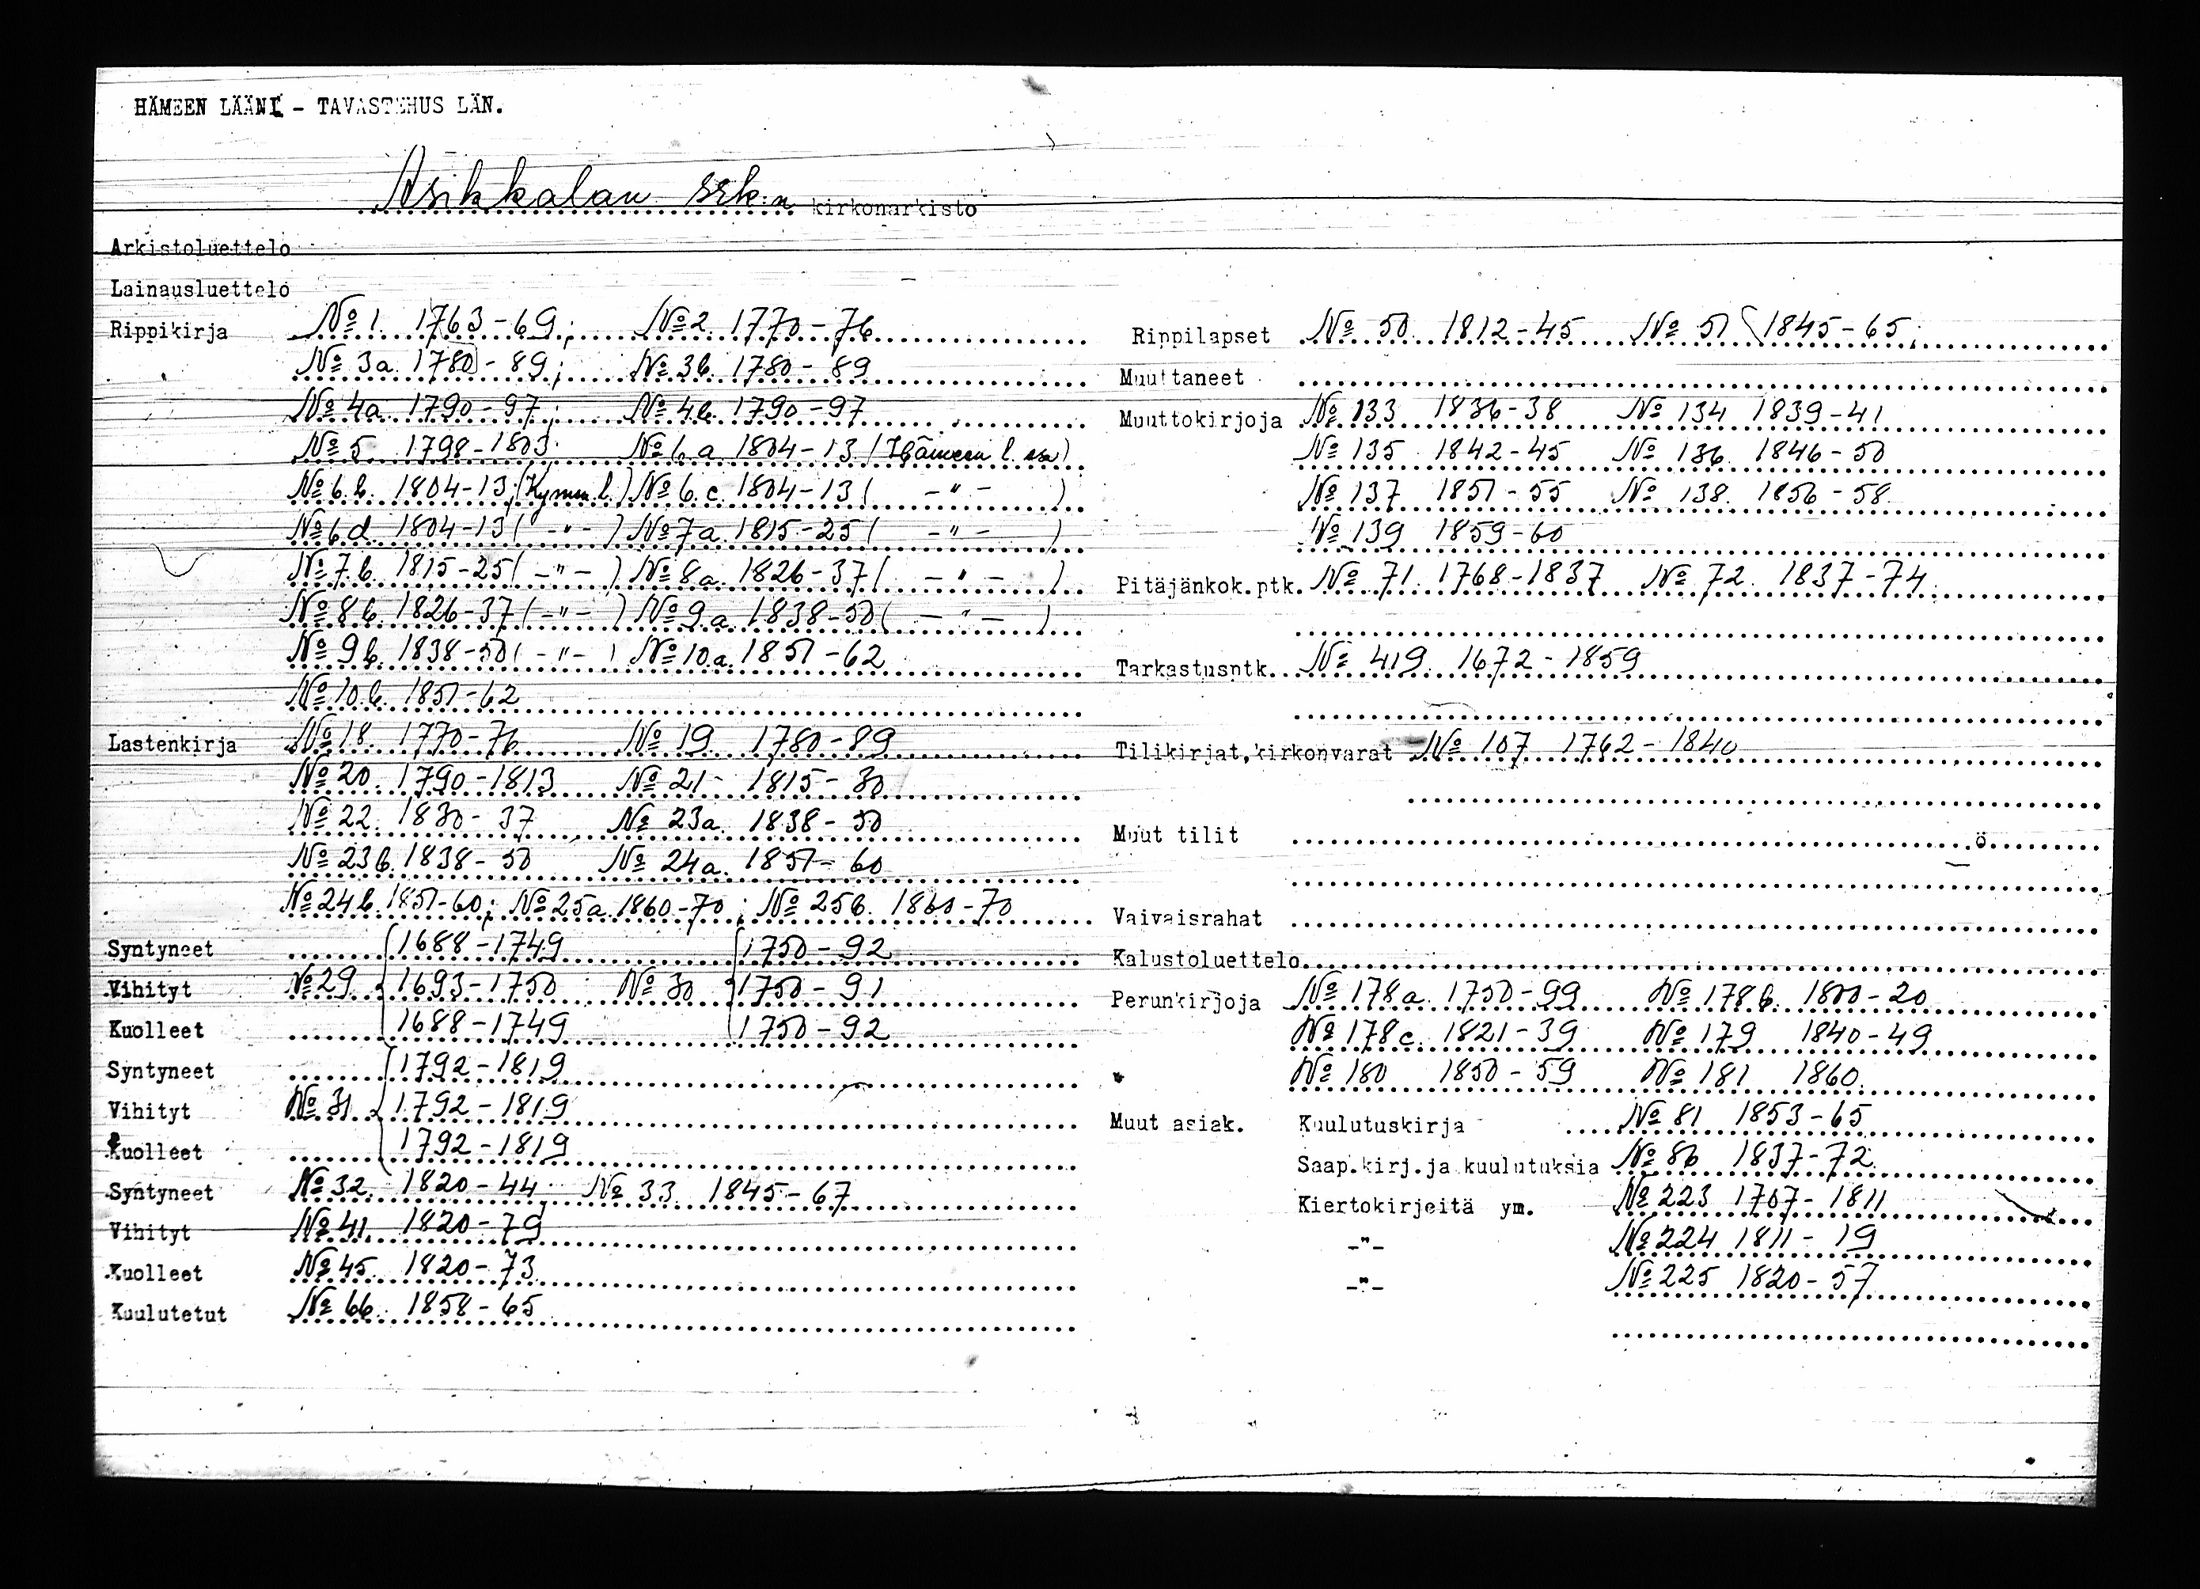 HÄMEEN LÄÄNI - TAVASTEHUS LÄN.
Asikkalan srk:n kirkonarkisto
Arkistoluettelo
Lainausluettelo
Rippikirja № 1. 1763-69; № 2. 1770-76
№ 3a. 1780-89; № 3b. 1780-89
№ 4a. 1790-97; № 4b. 1790-97
№ 5. 1798-1803 № 6.a 1804-13 (Hämeen l. ssa)
№ 6.b. 1804-13 (Kymen l.) № 6.c. 1804-13 ( -"- )
№ 6.d. 1804-13 ( -"- ) № 7a. 1815-25 ( -"- )
№ 7.b. 1815-25 ( -"- ) № 8a. 1826-37 ( -"- )
№ 8b. 1826-37 ( -"- ) № 9.a. 1838-50 ( -"- )
№ 9b. 1838-50 ( -"- ) № 10.a. 1851-62
№ 10.b. 1851-62
Lastenkirja № 18. 1770-76 № 19. 1780-89
№ 20. 1790-1813 № 21 1815-30
№ 22. 1830-37 № 23a. 1838-50
№ 23b. 1838-50 № 24a. 1851-60
№ 24b. 1851-60; № 25a. 1860-70; № 25b. 1860-70
Syntyneet 1688-1749 1750-92
Vihityt № 29 1693-1750 № 30 1750-91
Kuolleet 1688-1749 1750-92
Syntyneet 1792-1819
Vihityt № 31 1792-1819
Kuolleet 1792-1819
Syntyneet № 32. 1820-44 № 33 1845-67
Vihityt № 41. 1820-79
Kuolleet № 45. 1820-73
Kuulutetut № 66. 1858-65
Rippilapset № 50. 1812-45 № 51 1845-65;
Muuttaneet
Muuttokirjoja № 133 1836-38 № 134 1839-41
№ 135 1842-45 № 136. 1846-50
№ 137 1851-55 № 138. 1856-58
№ 139 1859-60
Pitäjänkok.ptk. № 71. 1768-1837 № 72. 1837-74.
Tarkastusptk. № 419. 1672-1859
Tilikirjat, kirkonvarat № 107 1762-1840
Muut tilit ö
Vaivaisrahat
Kalustoluettelo
Perunkirjoja № 178a. 1750-99 № 178b. 1800-20
№ 178c. 1821-39 № 179 1840-49
№ 180 1850-59 № 181 1860.
Muut asiak. Kuulutuskirja № 81 1853-65
Saap.kirj.ja kuulutuksia № 86 1837-72.
Kiertokirjeitä ym. № 223 1707-1811
-"- № 224 1811-19
-"- № 225 1820-57